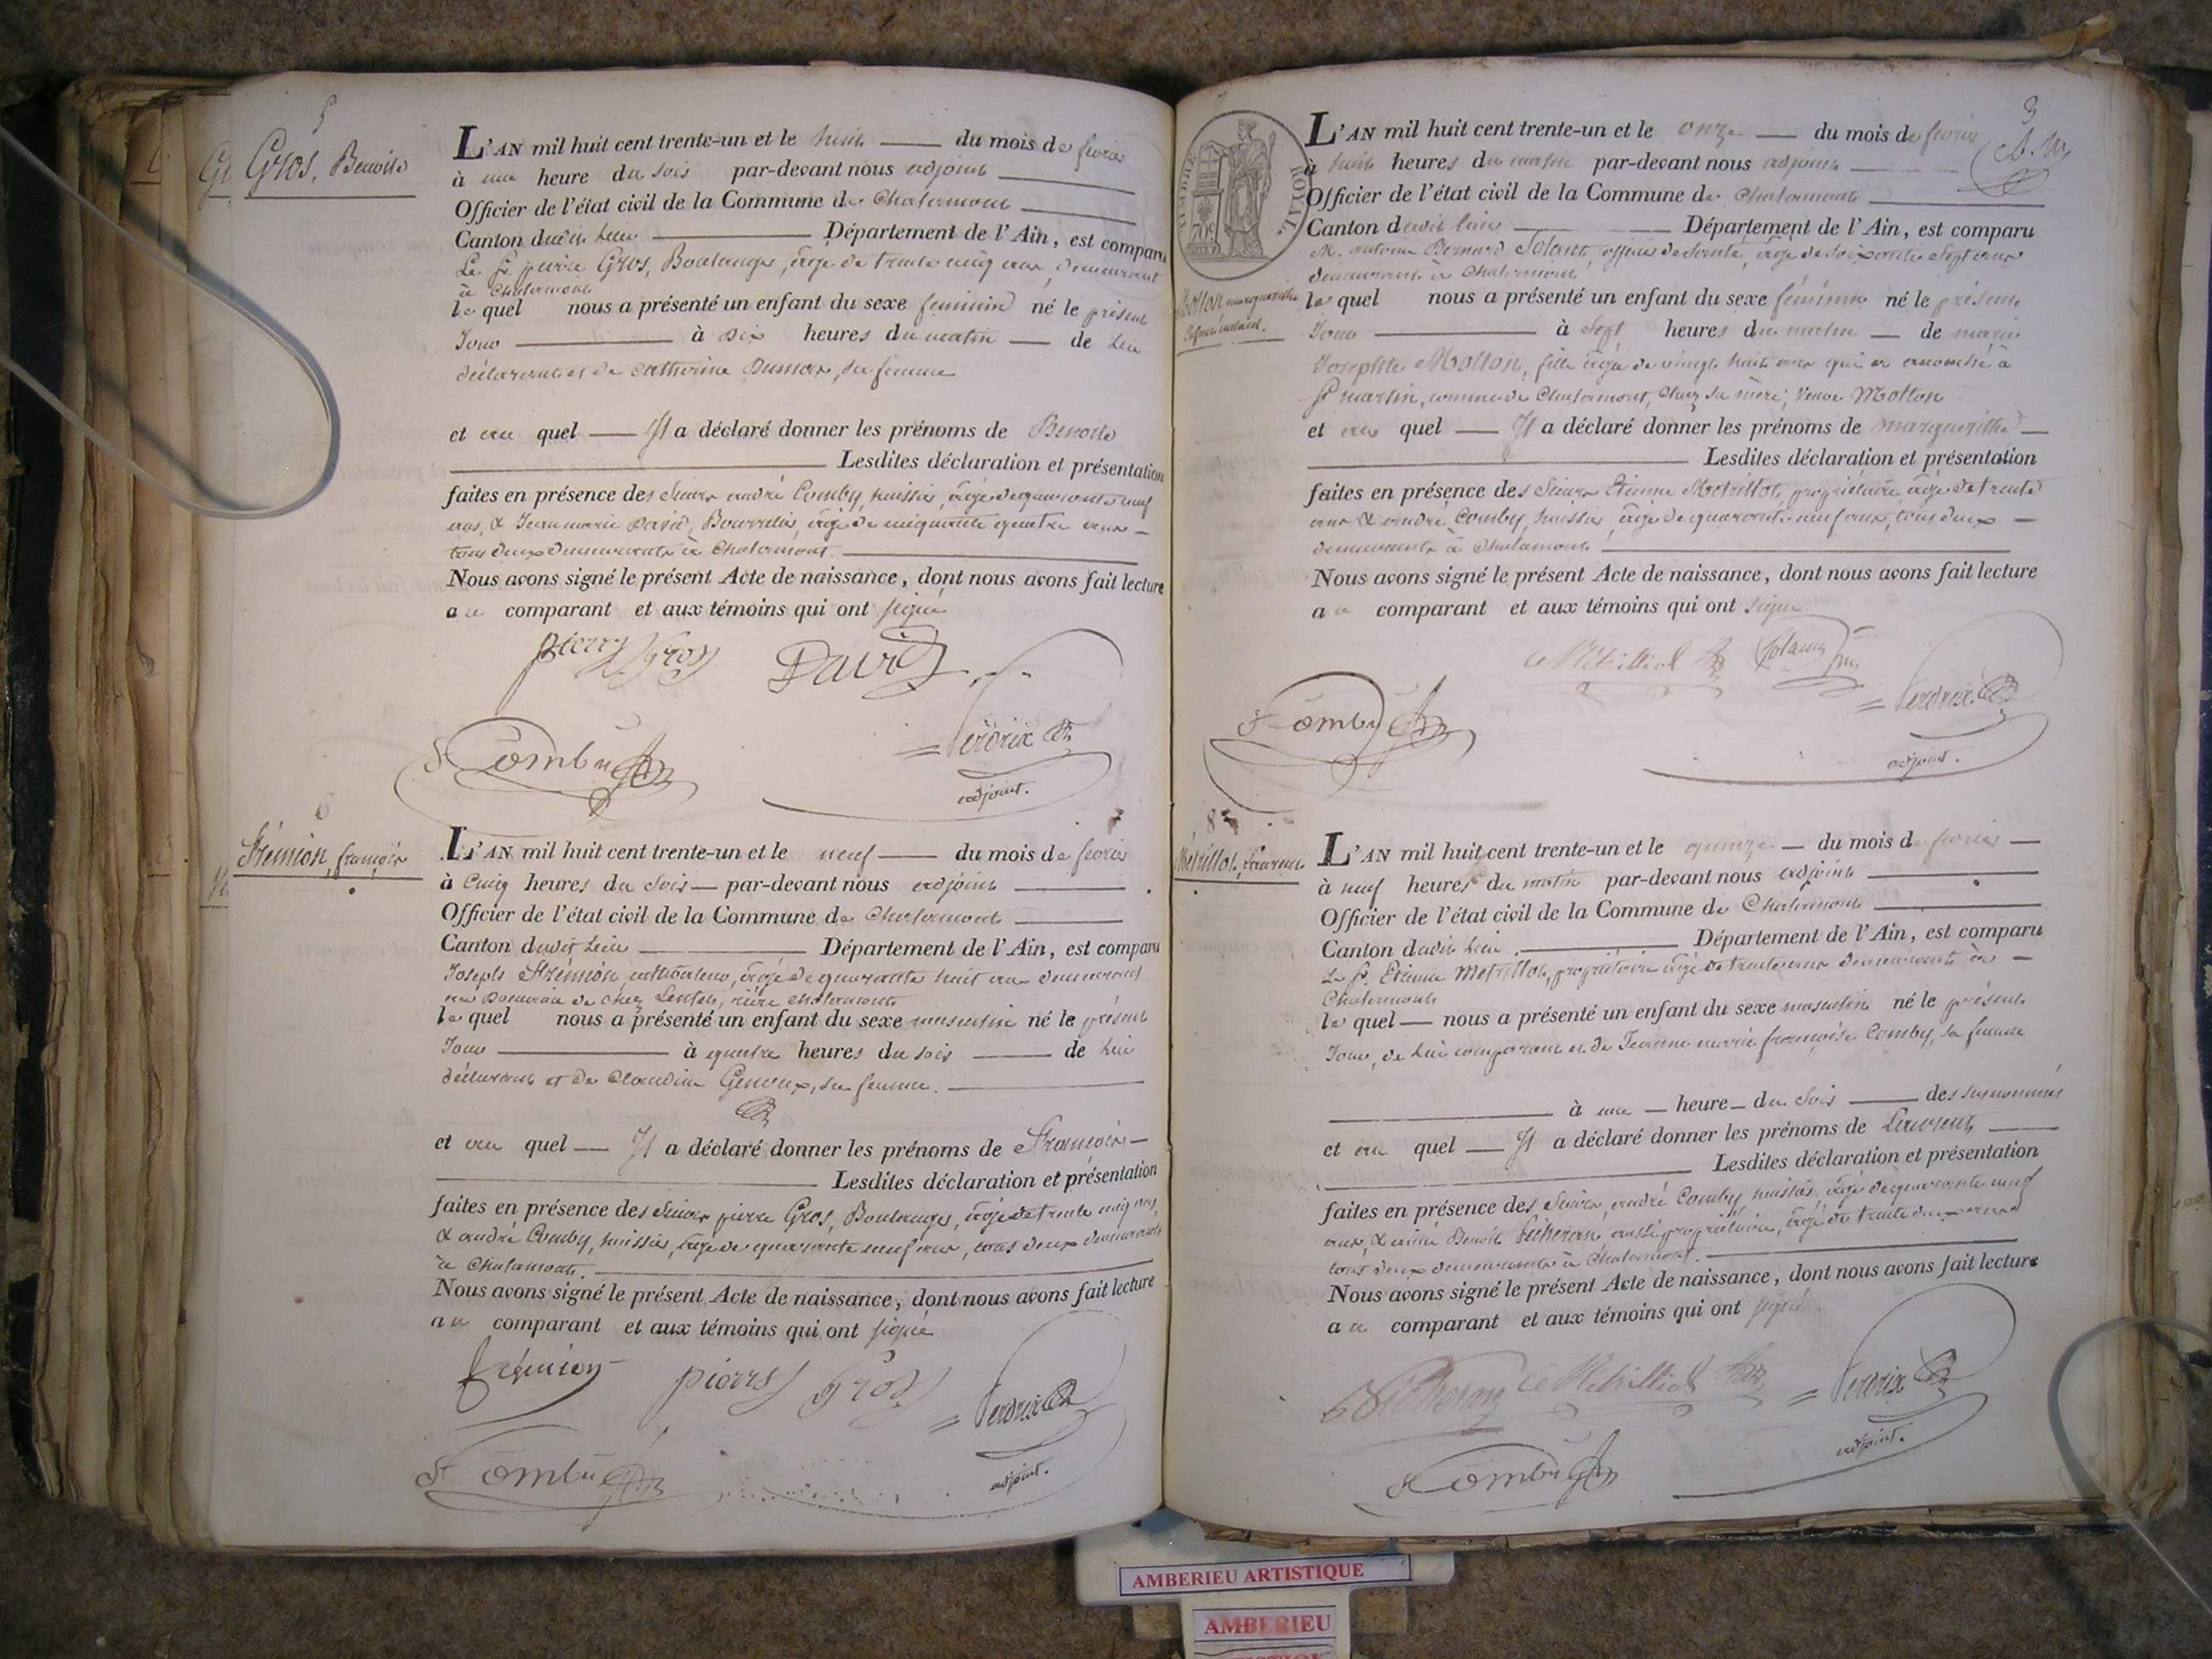 5
Gros, Benoite
L'AN mil huit cent trente-un et le huit du mois de fevrier
à une heure du soir par-devant nous adjoint
Officier de l'état civil de la Commune de Chalamont
Canton dudit lieu Département de l'Ain, est comparu
Le Sr. pierre Gros, Boulanger, âgé de trente cinq ans, demeurant
à Chalamont
lequel nous a présenté un enfant du sexe feminin né le présent
Jour à dix heures du matin de lui
déclarant et de Catherine Dumas, sa femme
et au quel Il a déclaré donner les prénoms de Benoite
Lesdites déclaration et présentation
faites en présence des Sieurs andré Comby, huissier, âgé de quarante neuf
ans, & Jean marie David, Bourrelier, âgé de cinquante quatre ans
tous deux demeurants à Chalamont.
Nous avons signé le présent Acte de naissance, dont nous avons fait lecture
au comparant et aux témoins qui ont signé
pierre Gros David
Comby Perdrix
adjoint.
6
Frémion, françois
L'AN mil huit cent trente-un et le neuf du mois de fevrier
à Cinq heures du Soir par-devant nous adjoint
Officier de l'état civil de la Commune de Chalamont
Canton dudit lieu Département de l'Ain, est comparu
Joseph Frémion, cultivateur, âgé de quarante huit ans demeurant
au Domaine de chez rière Chalamont
lequel nous a présenté un enfant du sexe masculin né le présent
Jour à quatre heures du soir de lui
déclarant et de Claudine Genoux, sa femme.
et au quel Il a déclaré donner les prénoms de François
Lesdites déclaration et présentation
faites en présence des Sieurs pierre Gros, Boulanger, âgé de trente cinq ans,
& andré Comby, huissier, âgé de quarante neuf ans, tous deux demeurants
à Chalamont.
Nous avons signé le présent Acte de naissance, dont nous avons fait lecture
au comparant et aux témoins qui ont signé
frémion pierre Gros Perdrix
Comby adjoint.
3
7
TIMBRE ROYAL
70c
Motton marguerithe
Enfant naturel.
L'AN mil huit cent trente-un et le onze du mois de fevrier
à huit heures du matin par-devant nous adjoint
Officier de l'état civil de la Commune de Chalamont
Canton dudit lieu Département de l'Ain, est comparu
M. antoine Bernard officier de Santé, âgé de soixante sept ans
demeurant à Chalamont
lequel nous a présenté un enfant du sexe féminin né le présent
Jour à Sept heures du matin de marie
Josephte Motton, fille âgée de vingt huit ans qui a accouché à
St martin, commune de Chalamont, chez sa mère, veuve Motton
et au quel Il a déclaré donner les prénoms de marguerithe
Lesdites déclaration et présentation
faites en présence des Sieurs Etienne Metrillot, propriétaire, âgé de trente
ans & andré Comby, huissier, âgé de quarante neuf ans, tous deux
demeurants à Chalamont
Nous avons signé le présent Acte de naissance, dont nous avons fait lecture
au comparant et aux témoins qui ont signé
Comby Perdrix
adjoint.
8
Metrillot, Laurent
L'AN mil huit cent trente-un et le quinze du mois de fevrier
à neuf heures du matin par-devant nous adjoint
Officier de l'état civil de la Commune de Chalamont
Canton dudit lieu Département de l'Ain, est comparu
Le Sr. Etienne Metrillot, propriétaire âgé de trente ans demeurant à
Chalamont
lequel nous a présenté un enfant du sexe masculin né le présent
Jour, de lui comparant et de Jeanne marie françoise Comby, sa femme
à une heure du Soir des susnommés
et au quel Il a déclaré donner les prénoms de Laurent
Lesdites déclaration et présentation
faites en présence des Sieurs andré Comby huissier âgé de quarante neuf
ans, & aimé Benoit aussi propriétaire, âgé de trente deux ans
tous deux demeurants à Chalamont.
Nous avons signé le présent Acte de naissance, dont nous avons fait lecture
au comparant et aux témoins qui ont signé
Perdrix
Comby adjoint.
AMBERIEU ARTISTIQUE
AMBERIEU